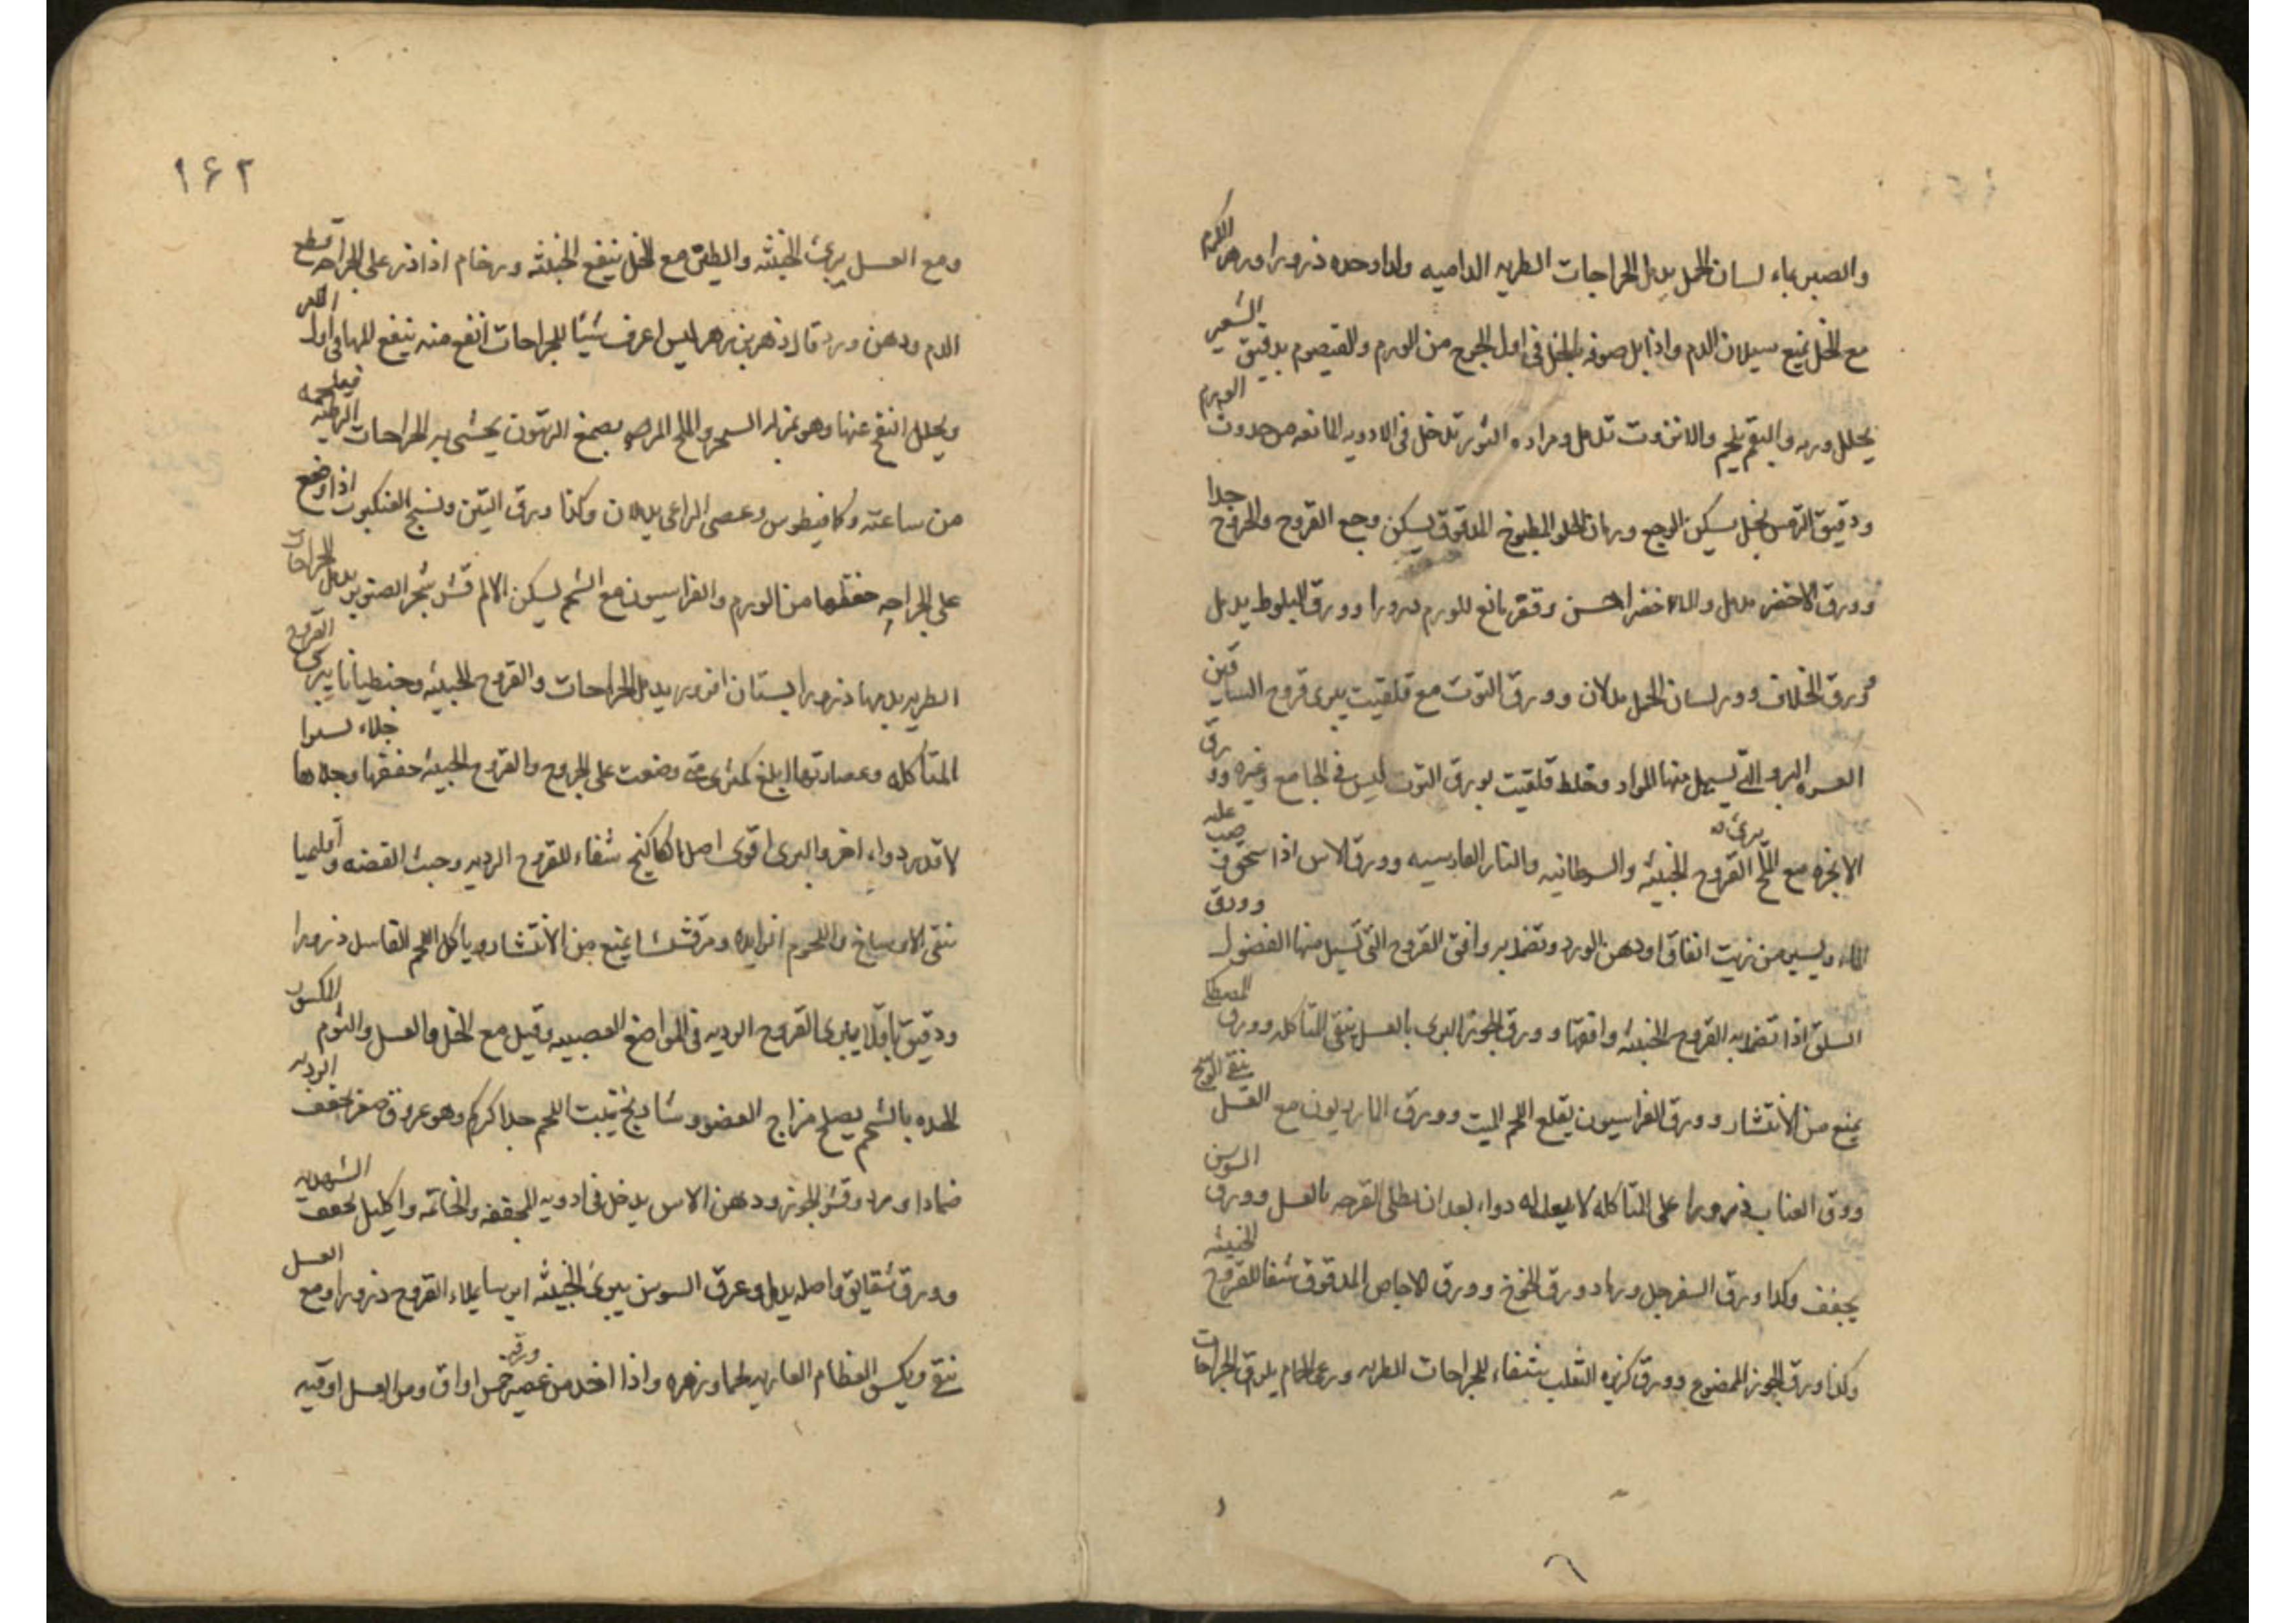 والصبر بماء لسان الحمل يدمل الجراحات الطريه الداميه وحده ذرورا وزهر الكرم
مع الخل يمنع سيلان الدم واذا بل صوفه بالخل في اول الجرح من الورم والقيصوم بدقيق الشعير
يحلل ورمه والبقم يلحم والانزروت تدمل ومراره الثور تدخل في الادويه المانعه من حدوث الورم
ودقيق الترمس بخل يسكن الوجع ورمان الحلو المطبوخ المدقوق يسكن وجع القروح والجروح جدا
وورق الاخضر يدمل احسن وقفر مانع للورم ذرورا وورق البلوط يدمل
وورق الخلاف وورق لسان الحمل يدملان وورق التوت مع قلقيت يبرى قروح الساقين
العسره البرو التي يسيل منها المواد وخلط قلقيت بورق التوت ليس في الجامع وغيره وورق
الانجره مع الملح يبرئ القروح الخبيثه والسرطانيه والنار الفارسيه وورق الاس اذا سحق وصب عليه
الماء ويسير من زيت انفاق او دهن الورد وتضمد به وافق القروح التي تسيل منها الفضول وورق
السلق اذا تضمد به القروح الخبيثه وافقها وورق الجوز البرى بالعسل ينقي المتاكله وورق المصطكى
يمنع من الانتشار وورق الفراسيون يقلع اللحم الميت وورق المازريون مع العسل ينقي الوسخ
وورق العناب ذرورا على المتاكله لا يعدله دواء بعد ان يطلى القرحه بالعسل وورق السوسن
يجفف وكذا ورق السفرجل ورماد ورق الخوخ وورق الاجاص المدقوق شفا للقروح الخبيثه
وكذا ورق الجوز الممضوغ وورق كزبره الثعلب شفاء للجراحات الطريه ورعي الحمام يلزق الجراحات
١٦٢
ومع العسل يبرئ الخبيثه والطين مع الخل ينفع الخبيثه ورخام اذا ذر على الجراحه قطع
الدم ودهن ورد قال زهر بن زهر ليس اعرف شيئا للجراحات انفع منه ينفع لها في اول الامر
ويحلل انتفخ عنها وهو بمنزله السحر والملح المر صمغ الزيتون يحشى به الجراحات الرطبه فيلحمه
من ساعته وكمافيطوس وعصى الراعي يدملان وكذا ورق التين ونسج العنكبوت اذا وضع
على الجراحه حفظها من الورم والفراسيون مع الشحم يسكن الالم قشر شجر الصنوبر يدمل الجراحات
الطريه بها ذرورا بستان افروز يدمل الجراحات والقروح الخبيثه وجنطيانا يبرى القروح
المتاكله وعصارتها ابلغ كمثرى متى وضعت على الجروح والقروح الخبيثه جففها وجلاها جلاء
لا يقدره دواء اخر والبرى اقوى اصل الكاكنج شفاء للقروح الرديه وخبث الفضه واقليميا
تنقى الاوساخ واللحوم الزايده ومرقشيشا يمنع من الانتشار وياكل اللحم الفاسد ذرورا
ودقيق باقلا يبرى القروح الرديه في المواضع العصبيه وقيل مع الخل والعسل والثوم الكسور
بالشحم يصلح مزاج العضو وشادنج ينبت اللحم جدا كركم وهو عروق صفر تجفف الرديه
ضمادا ورد وقشر الجوز ودهن الاس يدخل في ادويه المجففه والخاتمه واكليل يجفف الشهديه
وورق شقايق واصله يدمل وعرق السوسن يبرئ الخبيثه ايرسا يملاء القروح ذرورا ومع العسل
ينقي ويكسى العظام العاريه لحما وزهره واذا اخذ من عصير ورقه خمس اواق ومن العسل اوقيه